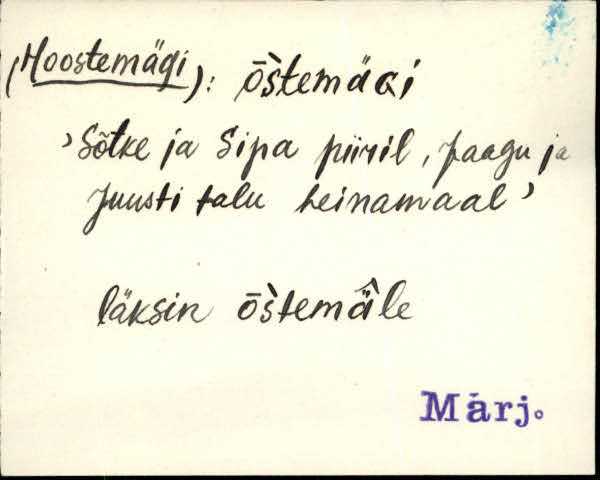 (Hoostemägi): ōs̀temäGi
›Sõtke ja Sipa piiril, Jaagu ja
Juusti talu heinamaal›
läksin ōs̀temä̂le
Märj.